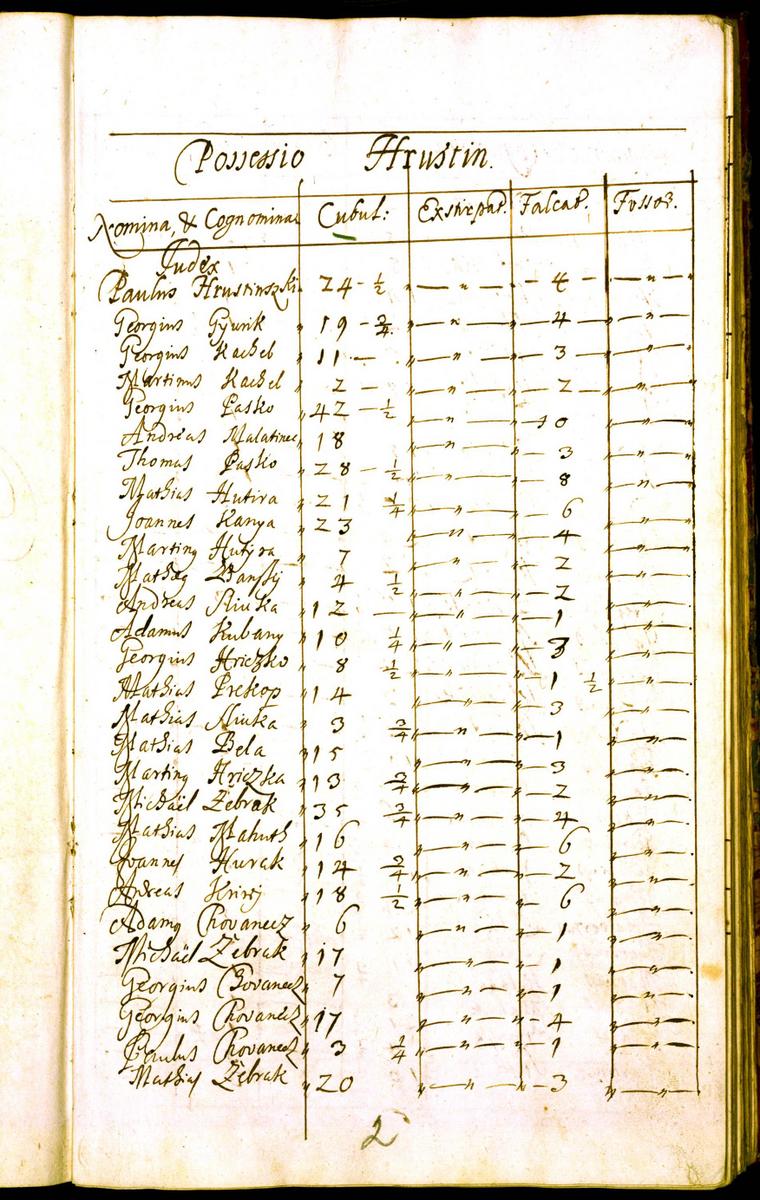 Possessio Hrustin.
Nomina, & Cognomina Cubul: Exstirpat. Falcat. Fossor.
Judex
Paulus Hrustinszki 24 - ½ — " — 4 — " —
Georgius Gyurik " 19 - ¾ " — " — " 4 — " — " —
Georgius Kachel " 11 — " — " — " — 3 — " — " —
Martinus Kachel " 2 — " — " — " — 2 — " — " —
Georgius Pasko " 42 — ½ " — " — " 10 " — " —
Andreas Malatinec " 18 " — " — " — 3 " — " —
Thomas Pasko " 28 — ½ " — " — " — 8 " — " —
Mathias Hutira " 21 ¼ " — " — " — 6 " — " —
Joannes Kanya " 23 " — " — " — 4 " — " —
Martinus Hutyra " 7 " — " — " — 2 " — " —
" 4 ½ " — " — " — 2 " — " —
Andreas " 12 — " — " — " — 1 " — " —
Adamus Kubany " 10 ¼ " — " — " — 3 " — " —
Georgius Hriczko " 8 ½ " — " — " — 1 ½ " — " —
Mathias Prekop " 14 " — " — " — 3 " — " —
Mathias " 3 ¾ " — " — " — 1 " — " —
Mathias Bela " 15 " — " — " — 3 " — " —
Martinus Hriczka " 13 ¾ " — " — " — 2 " — " —
Michaël Zebrak " 35 ¾ " — " — " — 4 " — " —
Mathias Mahuth " 16 " — " — " — 6 " — " —
Joannes Hurak " 14 ¾ " — " — " — 2 " — " —
Andreas Kriwy " 18 ½ " — " — " — 6 " — " —
Adamus Chovanecz " 6 " — " — " — 1 " — " —
Michaël Zebrak " 17 " — " — " — 1 " — " —
Georgius Chovanecz " 7 " — " — " — 1 " — " —
Georgius Chovanecz " 17 " — " — " — 4 " — " —
Paulus Chovanecz " 3 ¼ " — " — " — 1 " — " —
Mathias Zebrak " 20 " — " — " — 3 " — " —
2